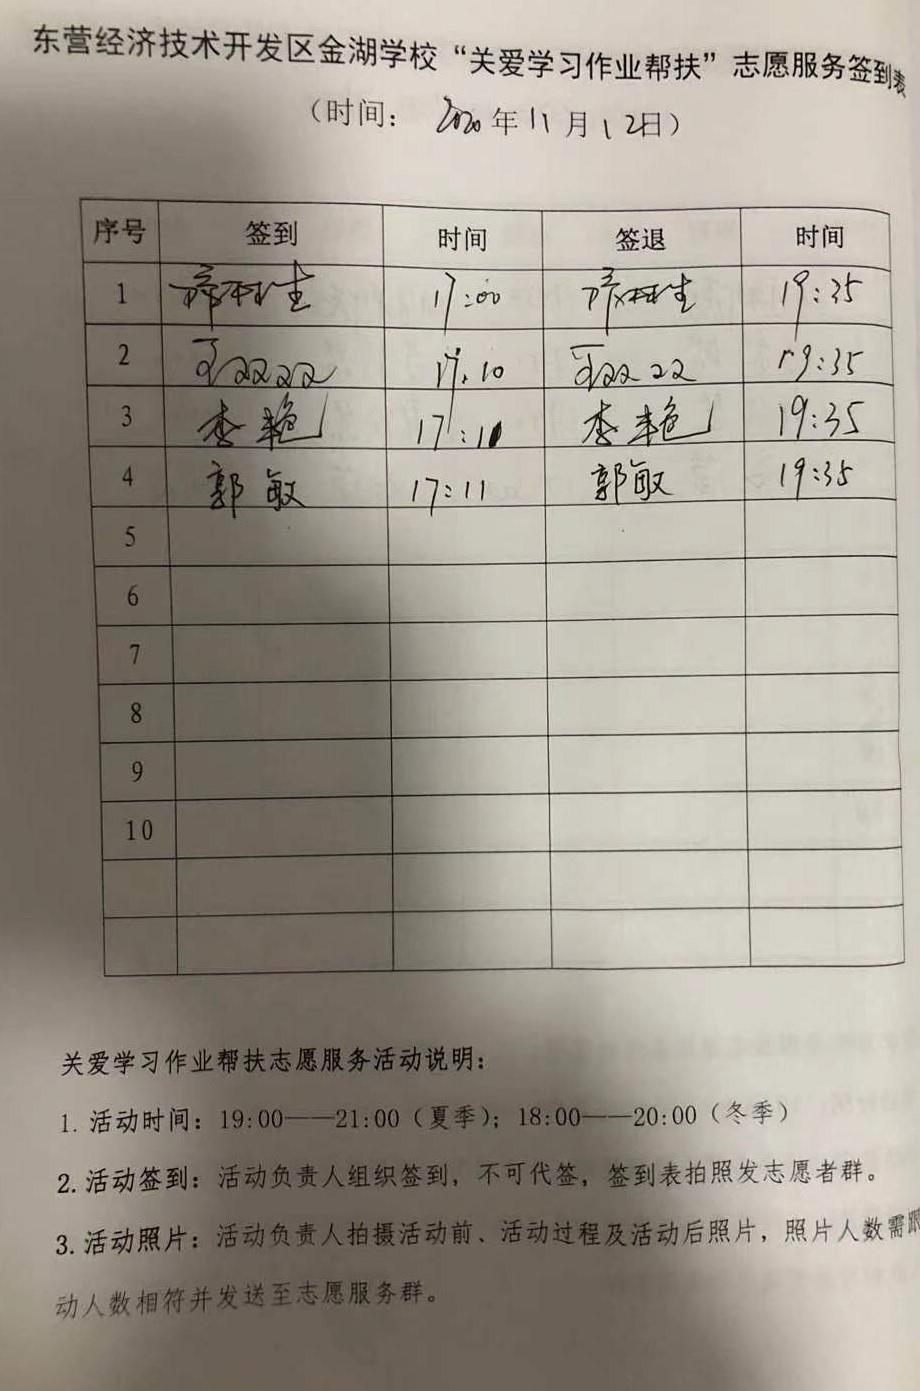 东营经济技术开发区金湖学校“关爱学习作业帮扶”志愿服务签到表
（时间： 2020年11月12日）
序号 签到 时间 签退 时间
1 17:00 19:35
2 王双双 17:10 王双双 19:35
3 李艳 17:10 李艳 19:35
4 郭敏 17:11 郭敏 19:35
5
6
7
8
9
10
关爱学习作业帮扶志愿服务活动说明：
1. 活动时间：19:00——21:00（夏季）；18:00——20:00（冬季）
2. 活动签到：活动负责人组织签到，不可代签，签到表拍照发志愿者群。
3. 活动照片：活动负责人拍摄活动前、活动过程及活动后照片，照片人数需跟
动人数相符并发送至志愿服务群。